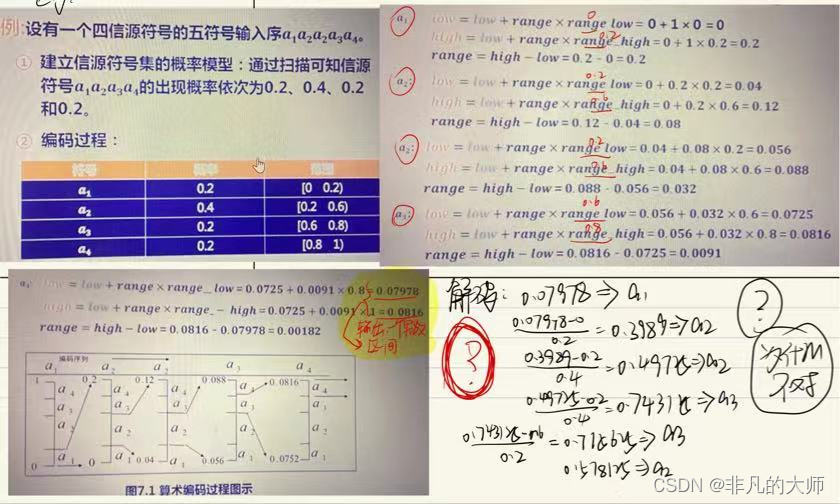 例:设有一个四信源符号的五符号输入序a₁a₂a₂a₃a₄。
① 建立信源符号集的概率模型:通过扫描可知信源
符号a₁a₂a₃a₄的出现概率依次为0.2、0.4、0.2
和0.2。
② 编码过程:
符号 概率 范围
a₁ 0.2 [0 0.2)
a₂ 0.4 [0.2 0.6)
a₃ 0.2 [0.6 0.8)
a₄ 0.2 [0.8 1)
0
a₁ low = low + range × range low = 0 + 1 × 0 = 0
0.2
high = low + range × range_high = 0 + 1 × 0.2 = 0.2
range = high − low = 0.2 − 0 = 0.2
0.2
a₂: low = low + range × range low = 0 + 0.2 × 0.2 = 0.04
0.6
high = low + range × range_high = 0 + 0.2 × 0.6 = 0.12
range = high − low = 0.12 − 0.04 = 0.08
0.2
a₂: low = low + range × range low = 0.04 + 0.08 × 0.2 = 0.056
0.6
high = low + range × range_high = 0.04 + 0.08 × 0.6 = 0.088
range = high − low = 0.088 − 0.056 = 0.032
0.6
a₃: low = low + range × range low = 0.056 + 0.032 × 0.6 = 0.0725
0.8
high = low + range × range_high = 0.056 + 0.032 × 0.8 = 0.0816
range = high − low = 0.0816 − 0.0725 = 0.0091
a₄: low = low + range × range_low = 0.0725 + 0.0091 × 0.8 = 0.07978
high = low + range × range_ − high = 0.0725 + 0.0091 × 1 = 0.0816
range = high − low = 0.0816 − 0.07978 = 0.00182
输出一个小数
区间
编码序列
a₁ a₂ a₂ a₃ a₄
1 0.2 0.12 0.088 0.0816
a₄ a₄ a₄ a₄ a₄
a₃ a₃ a₃ a₃ a₃
a₂ a₂ a₂ a₂ a₂
0 a₁ 0 a₁ 0.04 a₁ 0.056 a₁ 0.0752 a₁
图7.1 算术编码过程图示
解码: 0.07978 ⇒ a₁
0.07978-0
0.2 = 0.3989 ⇒ a₂
0.3989-0.2
0.4 = 0.49725 ⇒ a₂
0.49725-0.2
0.4 = 0.743125 ⇒ a₃
0.743125-0.6
0.2 = 0.715625 ⇒ a₃
0.578125 ⇒ a₂
?
?
为什么
不对
CSDN @非凡的大师